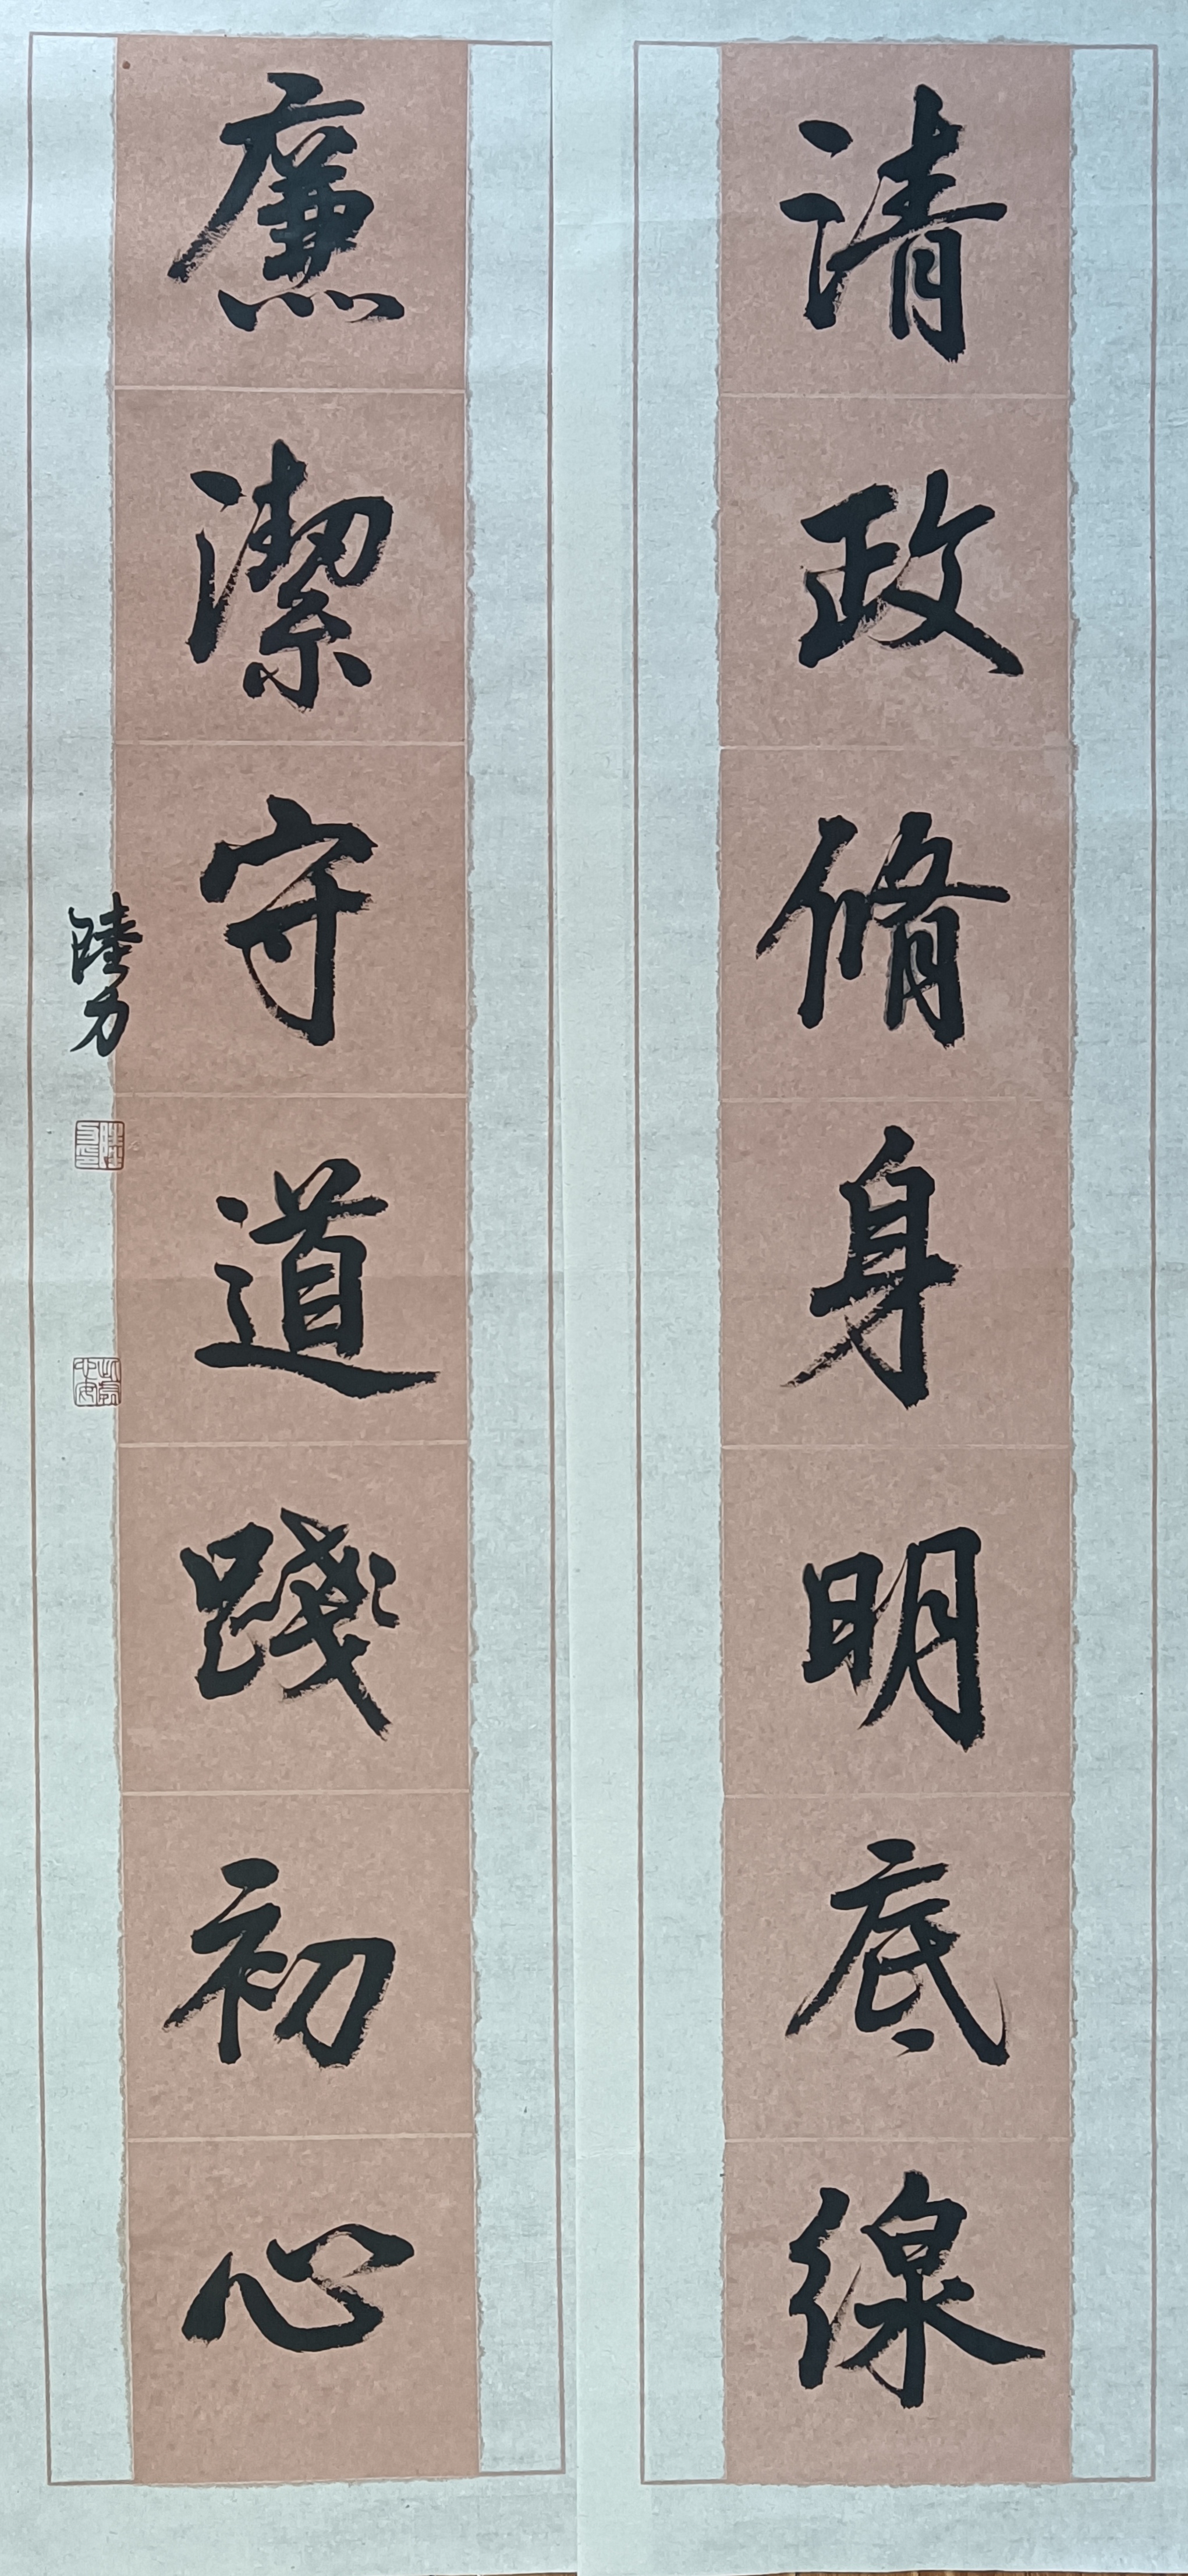 清政脩身明底線
廉潔守道踐初心
陸力